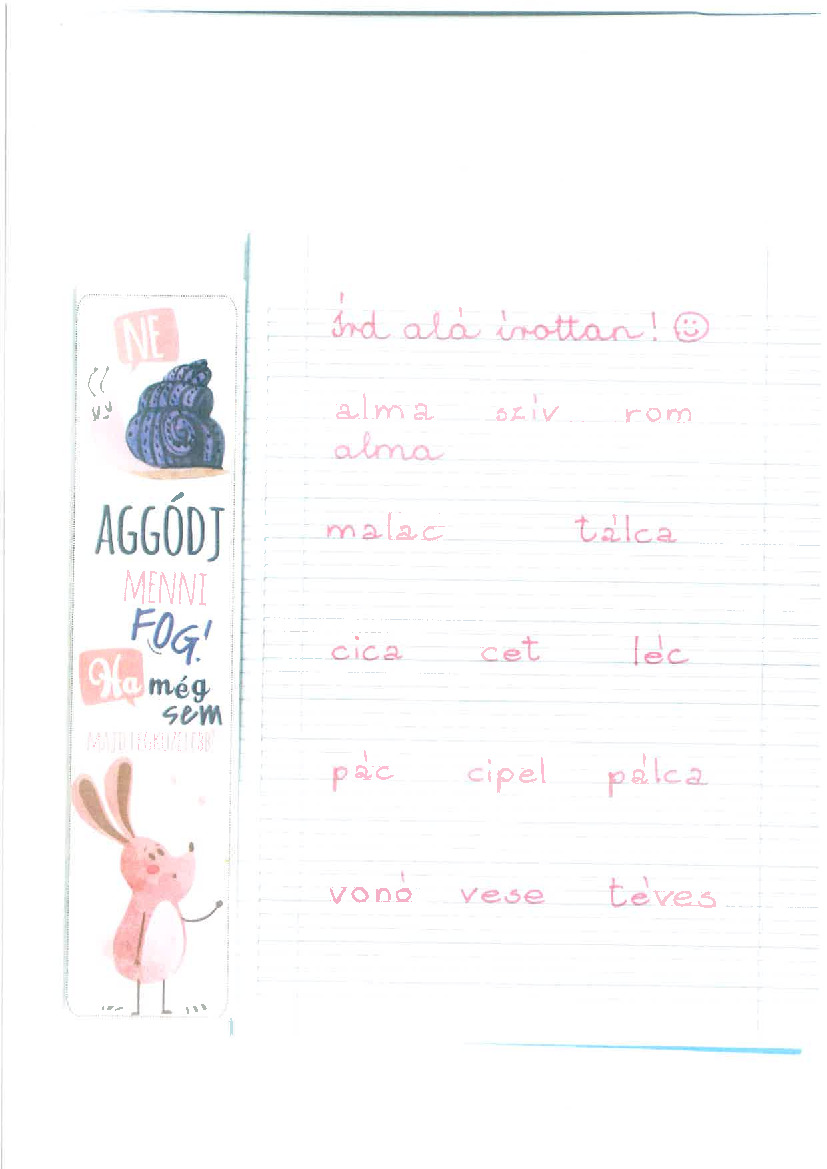 NE
AGGÓDJ
MENNI
FOG!
Ha még
sem
MAJD LEGKÖZELEBB!
Írd alá írottan! ☺
alma szív rom
alma
malac tálca
cica cet léc
pác cipel pálca
vonó vese téves